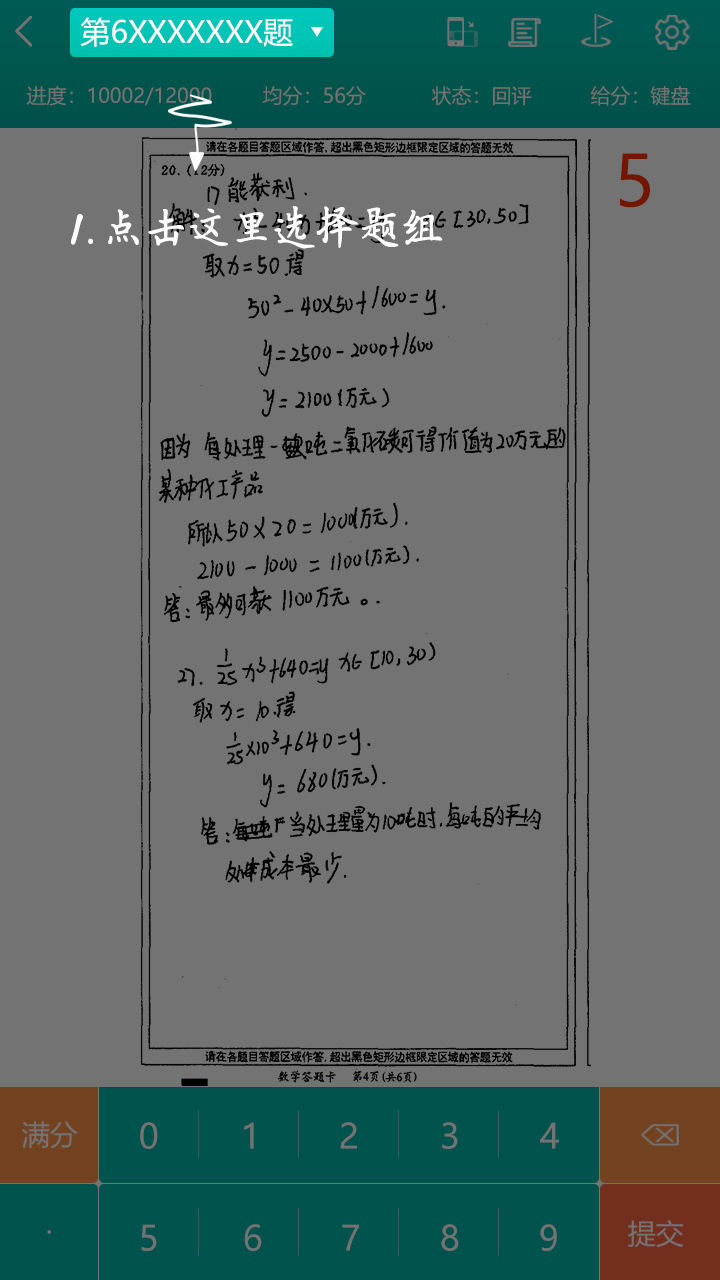 第6XXXXXXX题
进度：10002/12000 均分：56分 状态：回评 给分：键盘
请在各题目答题区域作答, 超出黑色矩形边框限定区域的答题无效
5
20. (12分)
1) 能获利.
1. 点击这里选择题组
∈[30,50]
取x=50得
50²-40×50+1600=y.
y=2500-2000+1600
y=2100(万元)
因为 每处理一吨二氧化碳可得价值为20万元的
某种化工产品
所以50×20=1000(万元).
2100-1000=1100(万元).
答:最多可获1100万元。.
27. 1/25x³+640=y x∈[10,30)
取x=10.得
1/25×10³+640=y.
y=680(万元).
答: 当处理量为10吨时,每吨的平均
处理成本最少.
请在各题目答题区域作答, 超出黑色矩形边框限定区域的答题无效
数学答题卡 第4页(共6页)
满分 0 1 2 3 4
. 5 6 7 8 9 提交